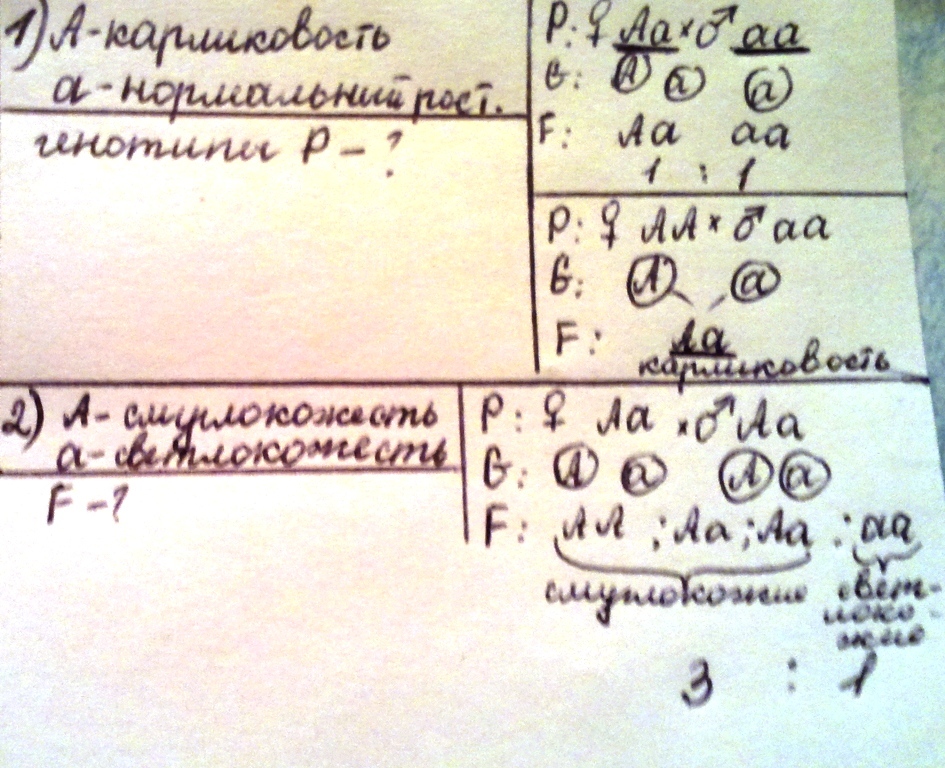 1) А-карликовость
а-нормальный рост.
генотипы Р - ?
Р: ♀ Аа × ♂ аа
G: А а а
F: Аа аа
1 : 1
Р: ♀ АА × ♂ аа
G: А а
F: Аа
карликовость
2) А- смуглокожесть
а-светлокожесть
F -?
Р: ♀ Аа × ♂ Аа
G: А а А а
F: АА ; Аа ; Аа : аа
смуглокожие свет-
локо-
жие
3 : 1